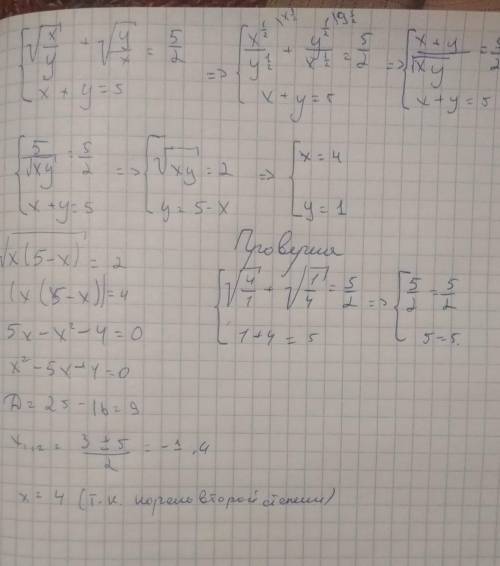 { √(x/y) + √(y/x) = 5/2 => { x^(1/2)/y^(1/2) + y^(1/2)/x^(1/2) = 5/2 => { (x+y)/√(xy) = 5/2
x + y = 5 x+y=5 x+y=5
{ 5/√(xy) = 5/2 => { √(xy) = 2 => { x=4
x+y=5 y=5-x y=1
√(x(5-x)) = 2
(x(5-x))=4
5x-x²-4=0
x²-5x+4=0
D=25-16=9
x₁,₂ = (3±5)/2 = -1, 4
x=4 (т.к. корень второй степени)
Проверка
{ √(4/1) + √(1/4) = 5/2 => { 5/2 = 5/2
1+4=5 5=5.